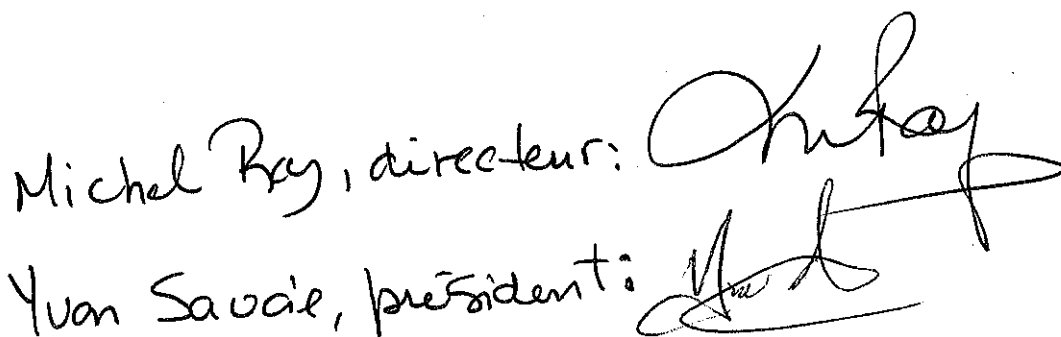 Michel Roy, directeur:
Yvon Savoie, président: